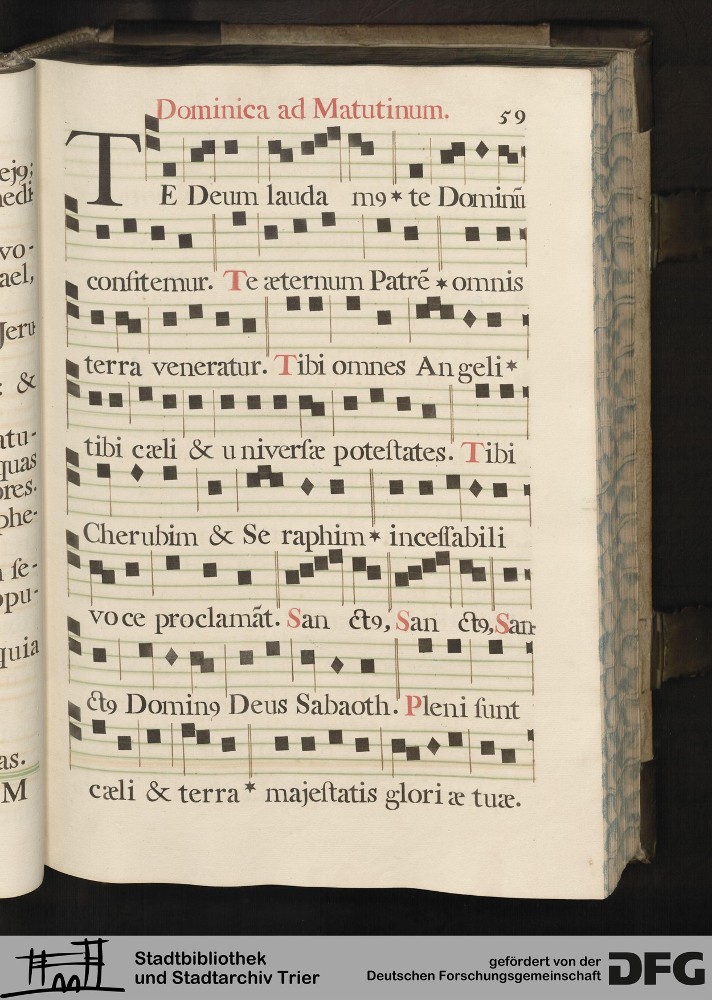 Dominica ad Matutinum. 59
TE Deum lauda mꝰ * te Dominū
confitemur. Te æternum Patrē * omnis
terra veneratur. Tibi omnes An geli *
tibi cæli & u niverſæ poteſtates. Tibi
Cherubim & Se raphim * inceſſabili
vo ce proclamāt. San ctꝰ, San ctꝰ, San-
ctꝰ Dominꝰ Deus Sabaoth. Pleni ſunt
cæli & terra * majeſtatis glori æ tuæ.
ejꝰ;
vo-
ael,
Jeru
: &
atu-
quas
ores.
phe-
ſe-
opu-
quia
as.
M
Stadtbibliothek
und Stadtarchiv Trier
gefördert von der
Deutschen Forschungsgemeinschaft
DFG